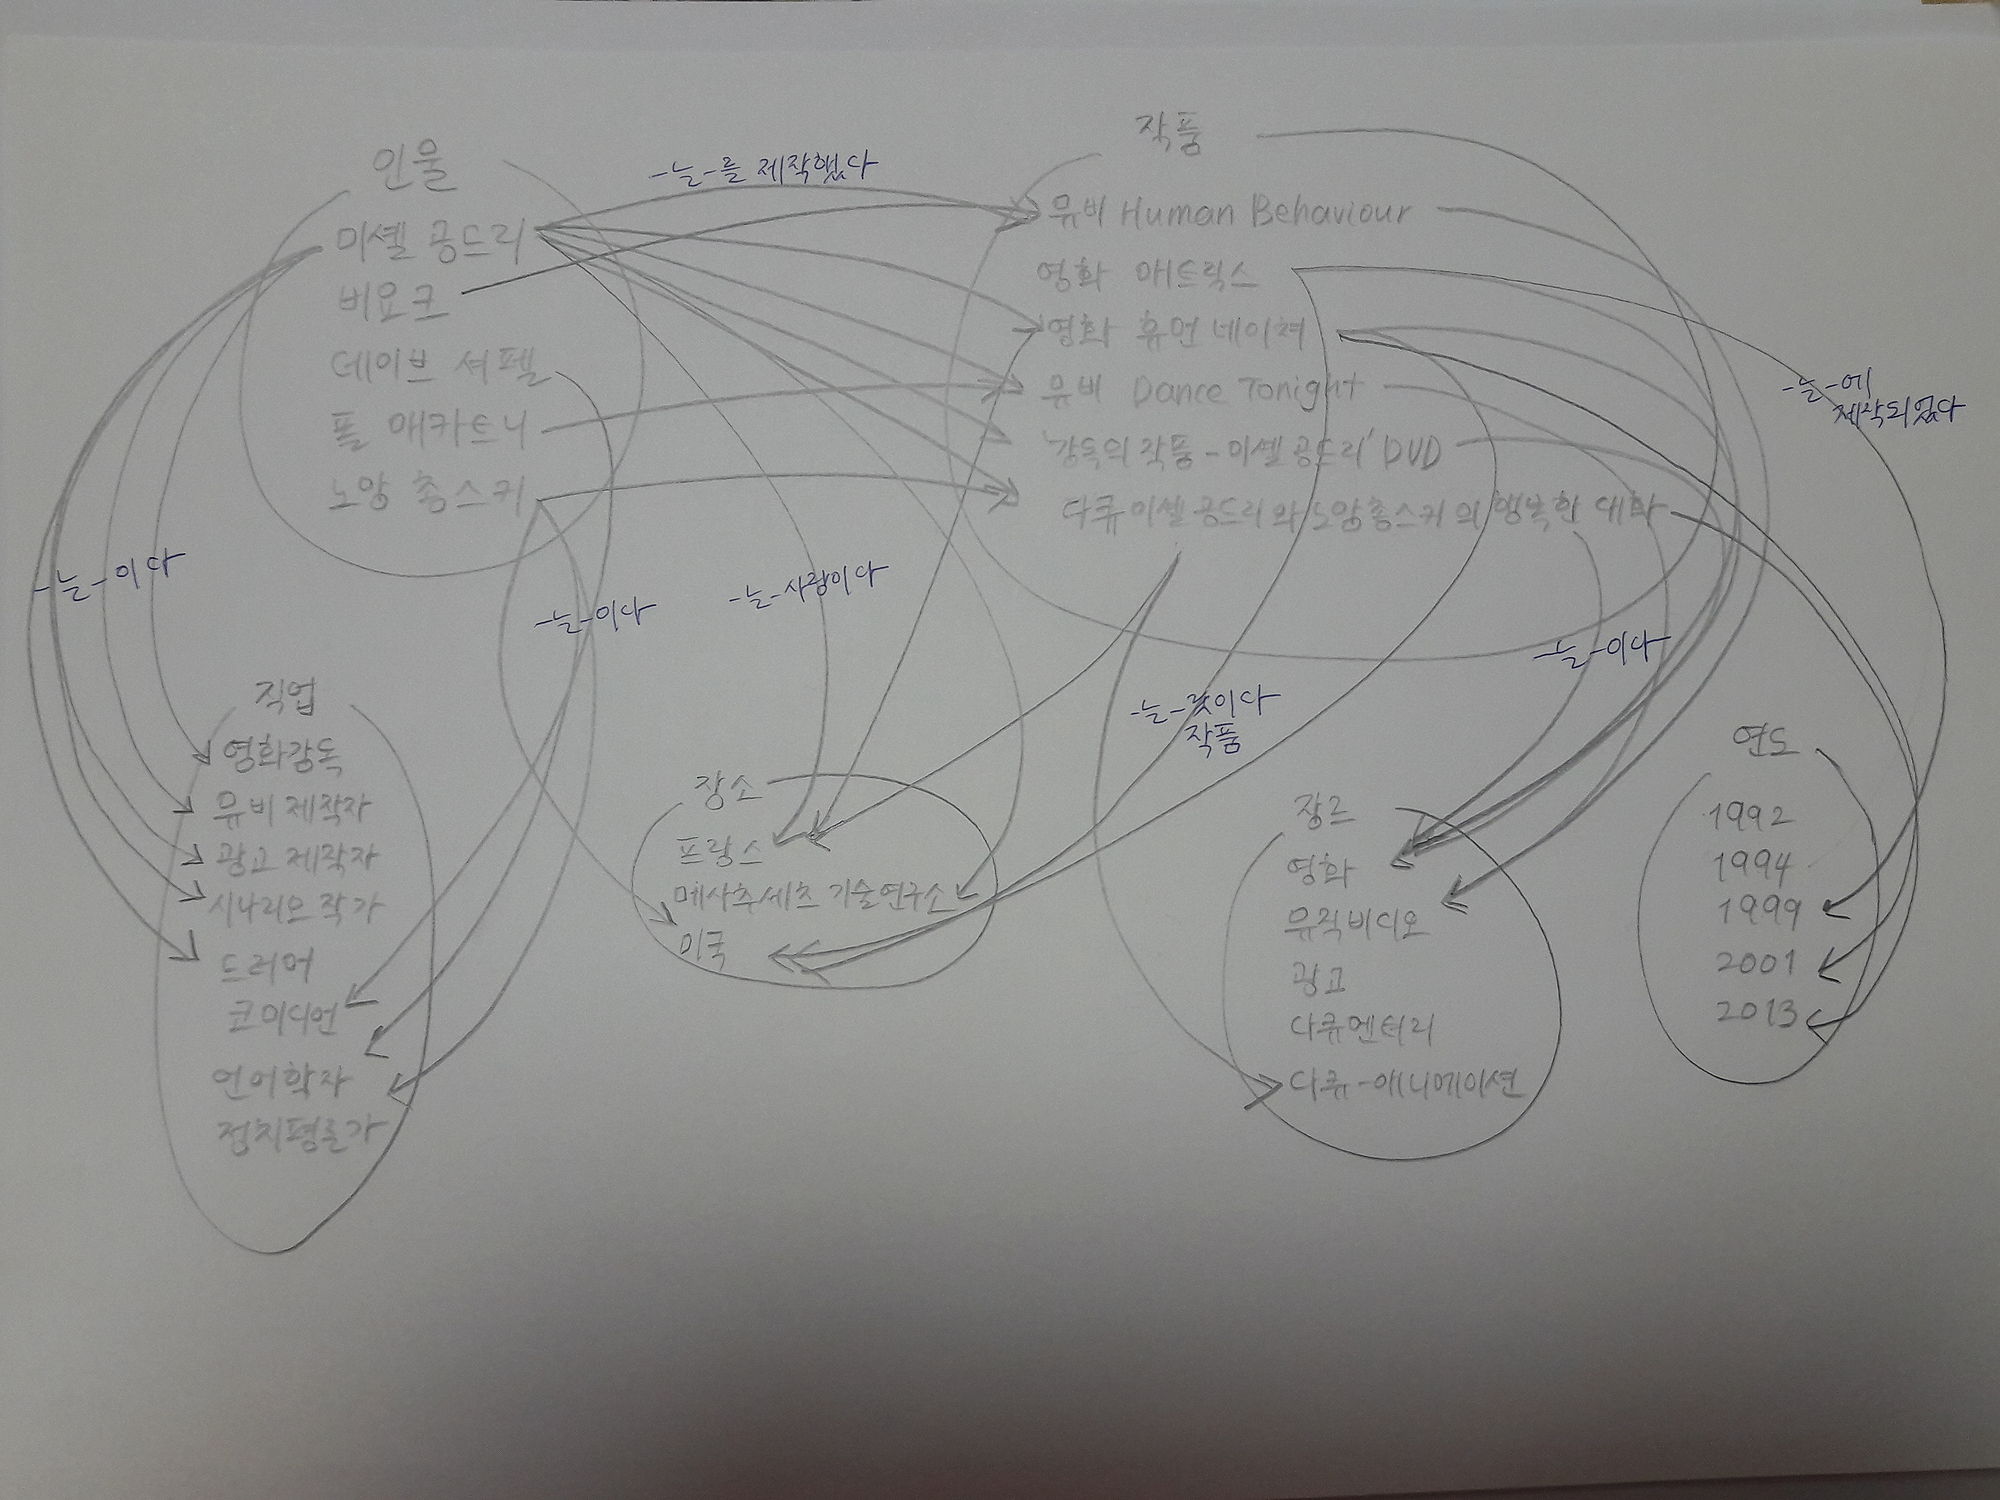 인물
미셸 공드리
비요크
데이브 셔펠
폴 매카트니
노암 촘스키
-는-를 제작했다
작품
뮤비 Human Behaviour
영화 매트릭스
영화 휴먼 네이쳐
뮤비 Dance Tonight
'감독의 작품-미셸 공드리' DVD
다큐 미셸 공드리와 노암 촘스키의 행복한 대화
-는-에
제작되었다
-는-이다
-는-이다
-는-사람이다
-는-이다
-는-
작품
직업
영화감독
뮤비 제작자
광고 제작자
시나리오 작가
드러머
코미디언
언어학자
정치평론가
장소
프랑스
메사추세츠 기술연구소
미국
장르
영화
뮤직비디오
광고
다큐멘터리
다큐-애니메이션
연도
1992
1994
1999
2001
2013